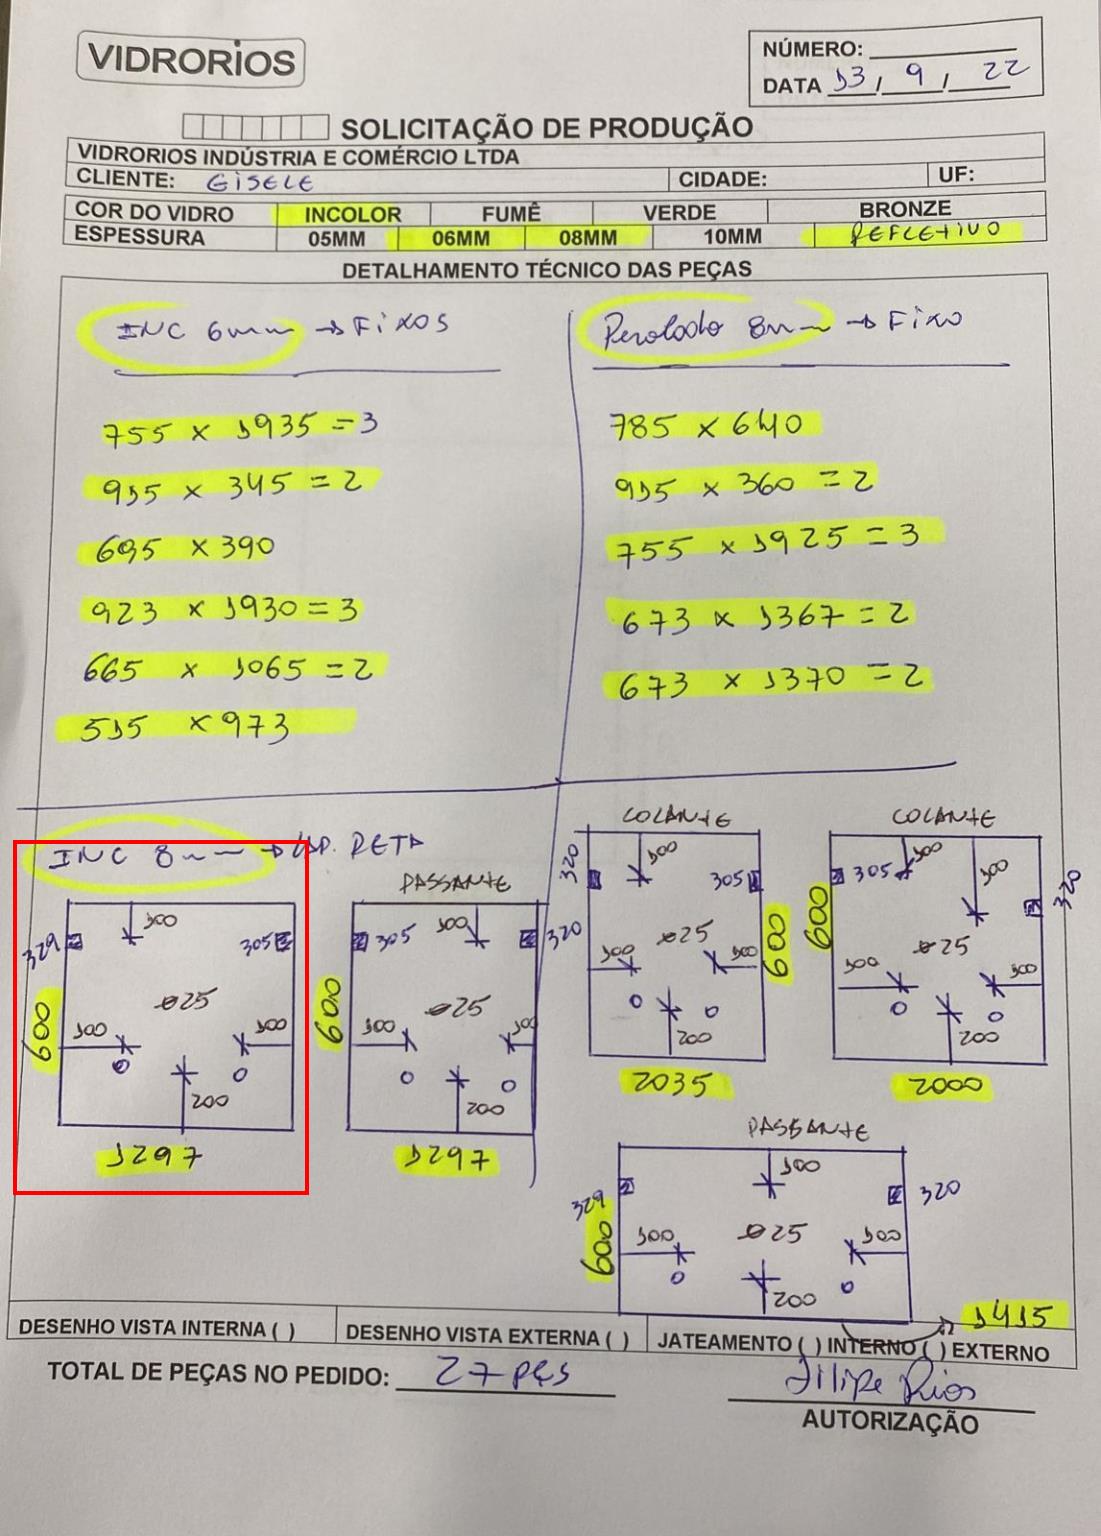 VIDRORIOS
NÚMERO:
DATA 13/9/22
SOLICITAÇÃO DE PRODUÇÃO
VIDRORIOS INDÚSTRIA E COMÉRCIO LTDA
CLIENTE: GISELE CIDADE: UF:
COR DO VIDRO INCOLOR FUMÊ VERDE BRONZE
ESPESSURA 05MM 06MM 08MM 10MM REFLETIVO
DETALHAMENTO TÉCNICO DAS PEÇAS
INC 6mm → FIXOS
755 x 1935 = 3
915 x 345 = 2
695 x 390
923 x 1930 = 3
665 x 1065 = 2
515 x 973
Perolado 8mm → FIXO
785 x 640
915 x 360 = 2
755 x 1925 = 3
673 x 1367 = 2
673 x 1370 = 2
INC 8mm → LAP. RETA
329 100 305
600 ø25
100 100
200
1297
PASSANTE
305 100 320
600 ø25
100 100
200
1297
COLANTE
320 100 305
ø25 600
100 100
200
2035
COLANTE
305 100 100 320
600 ø25
100 100
200
2000
PASSANTE
329 100 320
600 ø25
100 100
200
1415
DESENHO VISTA INTERNA ( ) DESENHO VISTA EXTERNA ( ) JATEAMENTO ( ) INTERNO ( ) EXTERNO
TOTAL DE PEÇAS NO PEDIDO: 27 PÇS
Filipe Rios
AUTORIZAÇÃO